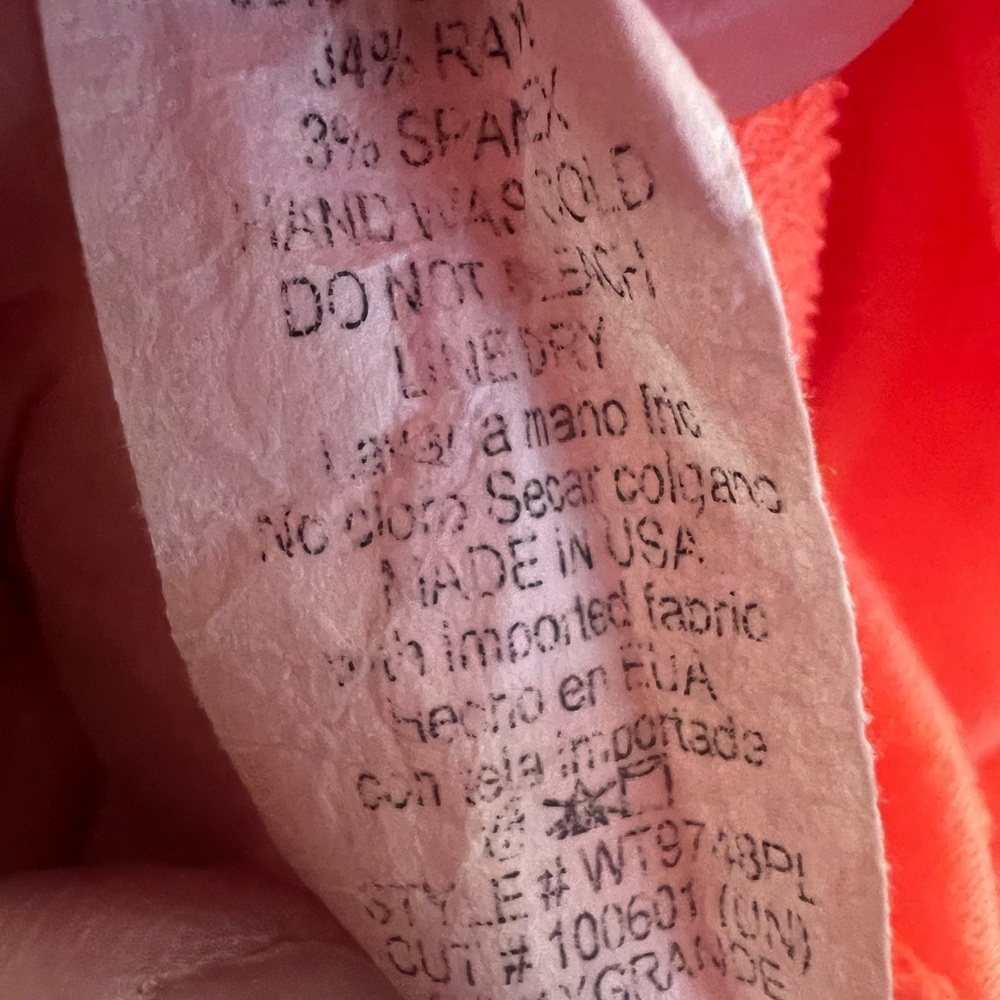 34% RAY
3% SPANEX
HAND WAS COLD
DO NOT BLEACH
LINE DRY
Lavar a mano fric
No cloro Secar colgano
MADE IN USA
with imported fabric
Hecho en EUA
con tela importade
STYLE # WT9748PL
CUT # 100601 (UN)